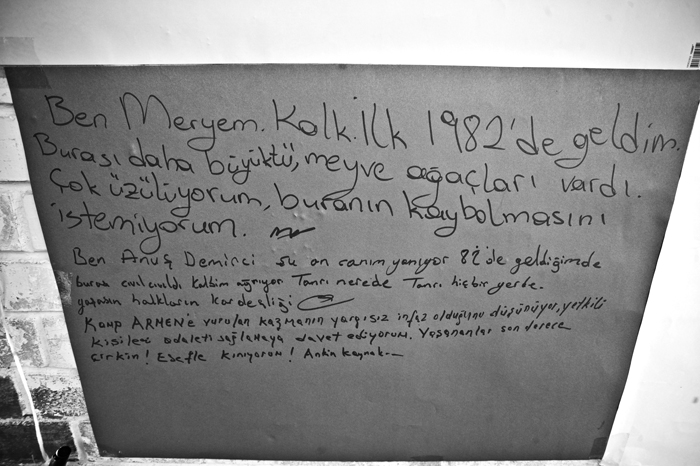 Ben Meryem. Kalk. İlk 1982'de geldim.
Burası daha büyüktü, meyve ağaçları vardı.
Çok üzülüyorum, buranın kaybolmasını
istemiyorum.
Ben Anuş Demirci şu an canım yanıyor 82'de geldiğimde
burası cıvıl cıvıldı Kalbim ağrıyor Tanrı nerede Tanrı hiçbir yerde.
yaşasın halkların kardeşliği
Kamp ARMEN'e vurulan kazmanın yargısız infaz olduğunu düşünüyor, yetkili
kişileri adaleti sağlamaya davet ediyorum. Yaşananlar son derece
çirkin! Esefle kınıyorum! Kaynak